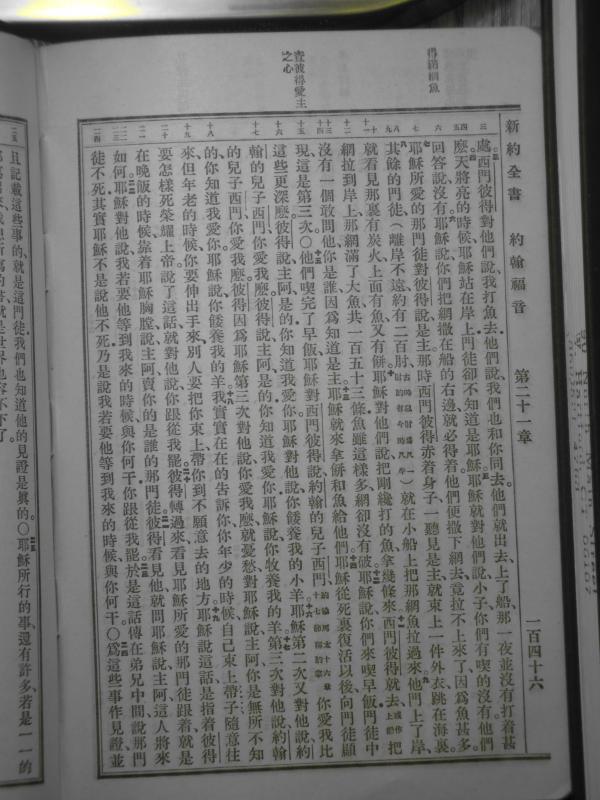 新約全書　約翰福音　第二十一章　一百四十六
得滿網魚
查彼得愛主之心
三 四五 六 七 八 九 十 十一 十二 十三 十四 十五 十六 十七 十八 十九 二十 二一 二二 二三 二四 二五
處。西門彼得對他們說、我打魚去。他們說、我們也和你同去。他們就出去、上了船、那一夜並沒有打着甚
麼。天將亮的時候、耶穌站在岸上、門徒卻不知道是耶穌。耶穌就對他們說、小子、你們有喫的沒有。他們
回答說、沒有。耶穌說、你們把網撒在船的右邊、就必得着。他們便撒下網去、竟拉不上來了、因爲魚甚多。
耶穌所愛的那門徒對彼得說、是主。那時西門彼得赤着身子、一聽見是主、就束上一件外衣、跳在海裏。
其餘的門徒、(離岸不遠、約有二百肘、古時以肘爲尺一肘約有今時尺半)就在小船上把那網魚拉過來。他們上了岸、
就看見那裏有炭火、上面有魚、又有餅。耶穌對他們說、把剛纔打的魚拿幾條來。西門彼得就去、或作上船把
網拉到岸上、那網滿了大魚、共一百五十三條。魚雖這樣多、網卻沒有破。耶穌說、你們來喫早飯。門徒中
沒有一個敢問他、你是誰、因爲知道是主。耶穌就來拿餅和魚給他們。耶穌從死裏復活以後、向門徒顯
現、這是第三次。〇他們喫完了早飯、耶穌對西門彼得說、約翰的兒子西門、約翰馬太十六章十七節稱約拿你愛我比
這些更深麼。彼得說、主阿、是的、你知道我愛你。耶穌對他說、你餧養我的小羊。耶穌第二次又對他說、約
翰的兒子西門、你愛我麼。彼得說、主阿、是的、你知道我愛你。耶穌說、你牧養我的羊。第三次對他說、約翰
的兒子西門、你愛我麼。彼得因爲耶穌第三次對他說、你愛我麼、就憂愁、對耶穌說、主阿、你是無所不知
的、你知道我愛你。耶穌說、你餧養我的羊。我實實在在的告訴你、你年少的時候、自己束上帶子、隨意往
來、但年老的時候、你要伸出手來、別人要把你束上、帶你到不願意去的地方。耶穌說這話、是指着彼得
要怎樣死、榮耀上帝。說了這話、就對他說、你跟從我罷。彼得轉過來、看見耶穌所愛的那門徒跟着、就是
在晚飯的時候、靠着耶穌胸膛、說主阿、賣你的是誰的那門徒。彼得看見他、就問耶穌說、主阿、這人將來
如何。耶穌對他說、我若要他等到我來的時候、與你何干、你跟從我罷。於是這話傳在弟兄中間、說那門
徒不死、其實耶穌不是說他不死、乃是說我若要他等到我來的時候、與你何干。〇爲這些事作見證、並
且記載這些事的、就是這門徒、我們也知道他的見證是眞的。〇耶穌所行的事、還有許多、若是一一的